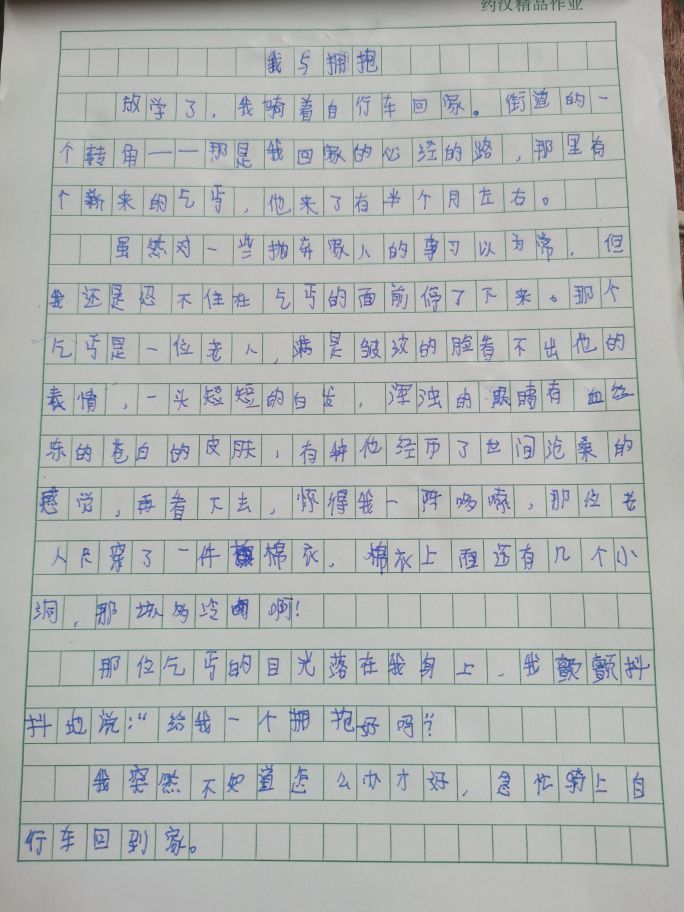 约汉精品作业
我与拥抱
放学了，我骑着自行车回家。街道的一
个转角——那是我回家的必经的路，那里有
个新来的乞丐，他来了有半个月左右。
虽然对一些抛弃家人的事习以为常，但
我还是忍不住在乞丐的面前停了下来。那个
乞丐是一位老人，满是皱纹的脸看不出他的
表情，一头短短的白发，浑浊的眼睛有血丝
东的苍白的皮肤，有种他经历了世间沧桑的
感觉，再看下去，怀得我一阵哆嗦，那位老
人只穿了一件棉衣，棉衣上面还有几个小
洞，那该多冷啊！
那位乞丐的目光落在我身上，我颤颤抖
抖地说：“给我一个拥抱好吗？”
我突然不知道怎么办才好，急忙骑上自
行车回到家。